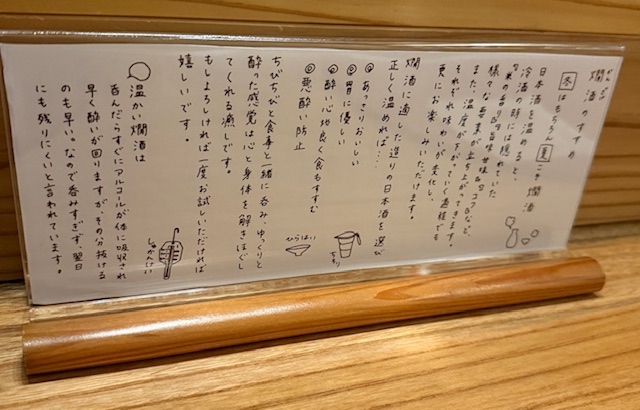 燗酒のすすめ
冬はもちろん夏こそ燗酒
日本酒を温めると、
冷酒の時には隠れていた
の香りや旨味 甘味 コクなど、
様々な要素が立ち上がってきます。
また、温度が下がっていく過程でも
それぞれ味わいが変化し、
更にお楽しみいただけます。
燗酒に適した造りの日本酒を選び
正しく温めれば…
◎あっさりおいしい
◎胃に優しい
◎酔い心地良く食もすすむ
◎悪酔い防止
ちろり
ひらはい
ちびちびと食事と一緒に呑み、ゆっくりと
酔った感覚は心と身体を解きほぐし
てくれる癒しです。
もしよろしければ一度お試しいただければ
嬉しいです。
しゅかんけい
温かい燗酒は
呑んだらすぐにアルコールが体に吸収され
早く酔いが回りますが、その分抜ける
のも早い。なので呑みすぎず、翌日
にも残りにくいと言われています。